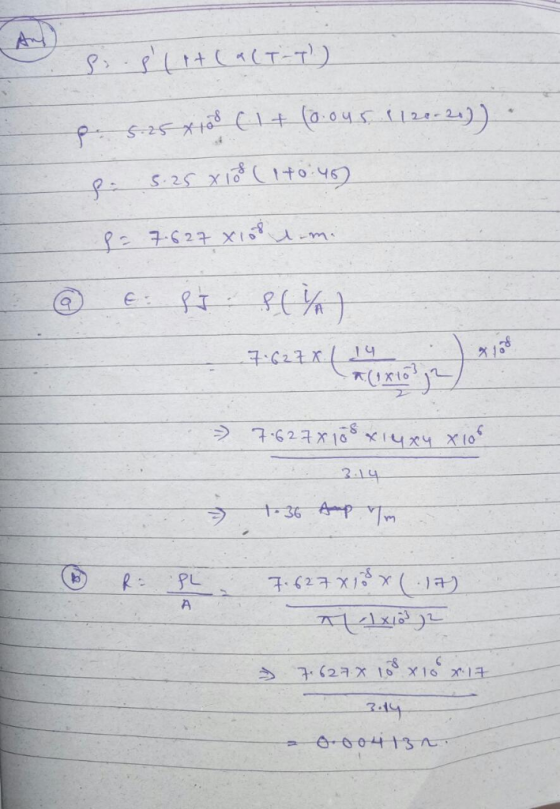 Ans
ρ = ρ' (1 + (α (T - T')
ρ = 5.25 × 10⁻⁸ (1 + (0.045 (120-20))
ρ = 5.25 × 10⁻⁸ (1+0.45)
ρ = 7.627 × 10⁻⁸ Ω-m.
(a) E = ρJ = ρ(i/A)
= 7.627 × (14 / π(1×10⁻³/2)²) × 10⁻⁸
⇒ 7.627 × 10⁻⁸ × 14 × 4 × 10⁶ / 3.14
⇒ 1.36 V/m
(b) R = ρL/A = 7.627 × 10⁻⁸ × (.17) / π(1×10⁻³)²
⇒ 7.627 × 10⁻⁸ × 10⁶ × .17 / 3.14
= 0.00413 Ω.